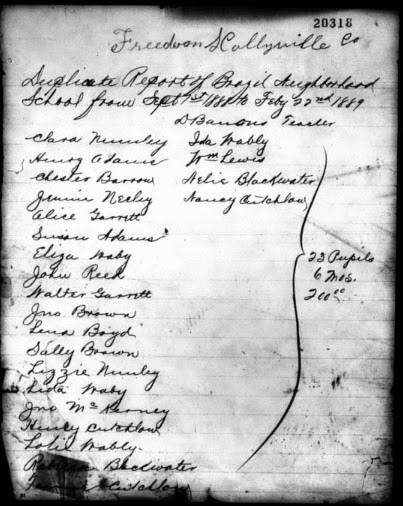 20318
Freedom Skullyville Co
Duplicate Report of Brazil Neighborhood
School from Sept 1st 1888 to Feby 22nd 1889
D Barrons Teacher
Clara Nunley
Henry Adams
Chester Barrow
Jennie Neeley
Alice Garrett
Susan Adams
Eliza Waby
John Reed
Walter Garrett
Jno. Brown
Lena Boyd
Sally Brown
Lizzie Nunley
Lida Waby
Jno McKerney
Henry Cutchlow
Wably
Blackwater
Cutchlow
Ida Wably
Wm Lewis
Nelie Blackwater
Nancy Cutchlow
23 Pupils
6 Mos.
200.00